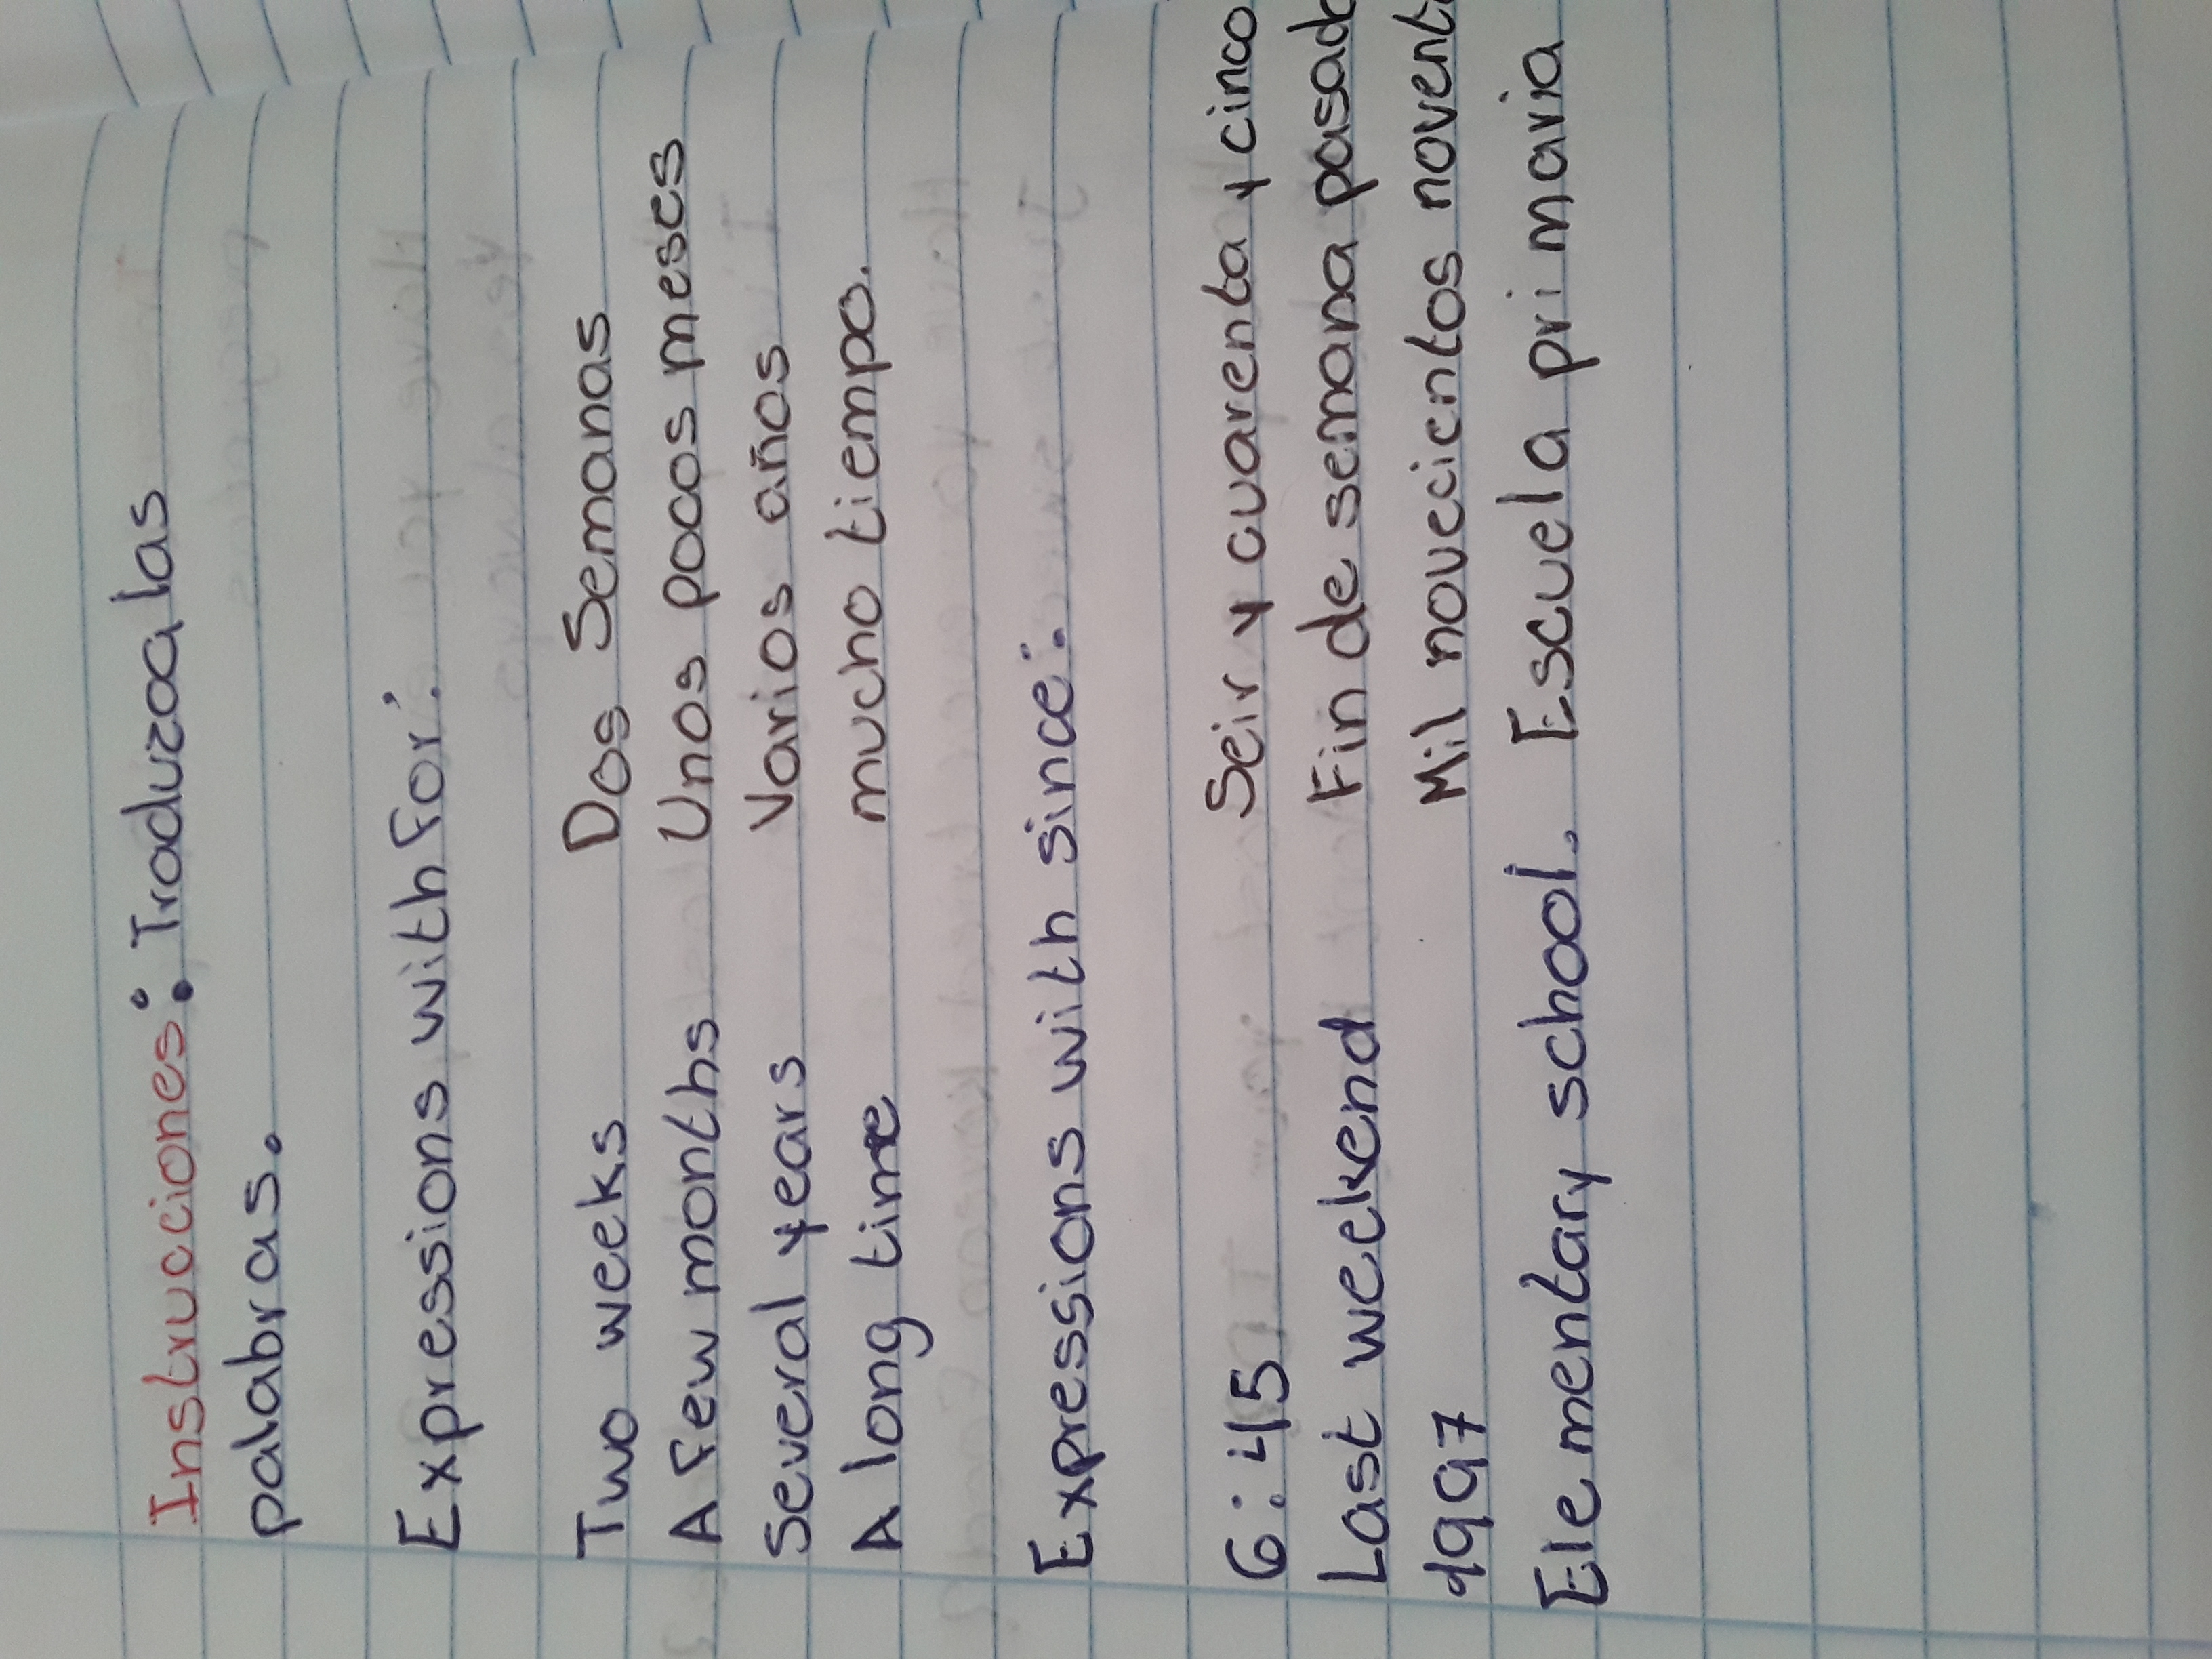 Instrucciones: Traduzca las
palabras.
Expressions with for:
Two weeks Dos Semanas
A few months Unos pocos meses
Several years Varios años
A long time mucho tiempo.
Expressions with since:
6:45 Seir y cuarenta y cinco
Last weekend Fin de semana pasad
1997 Mil novecientos novent
Elementary school. Escuela primaria